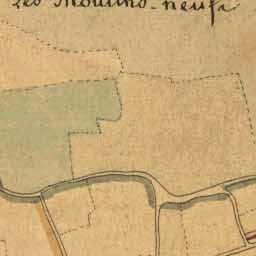 Les Moulins-neufs